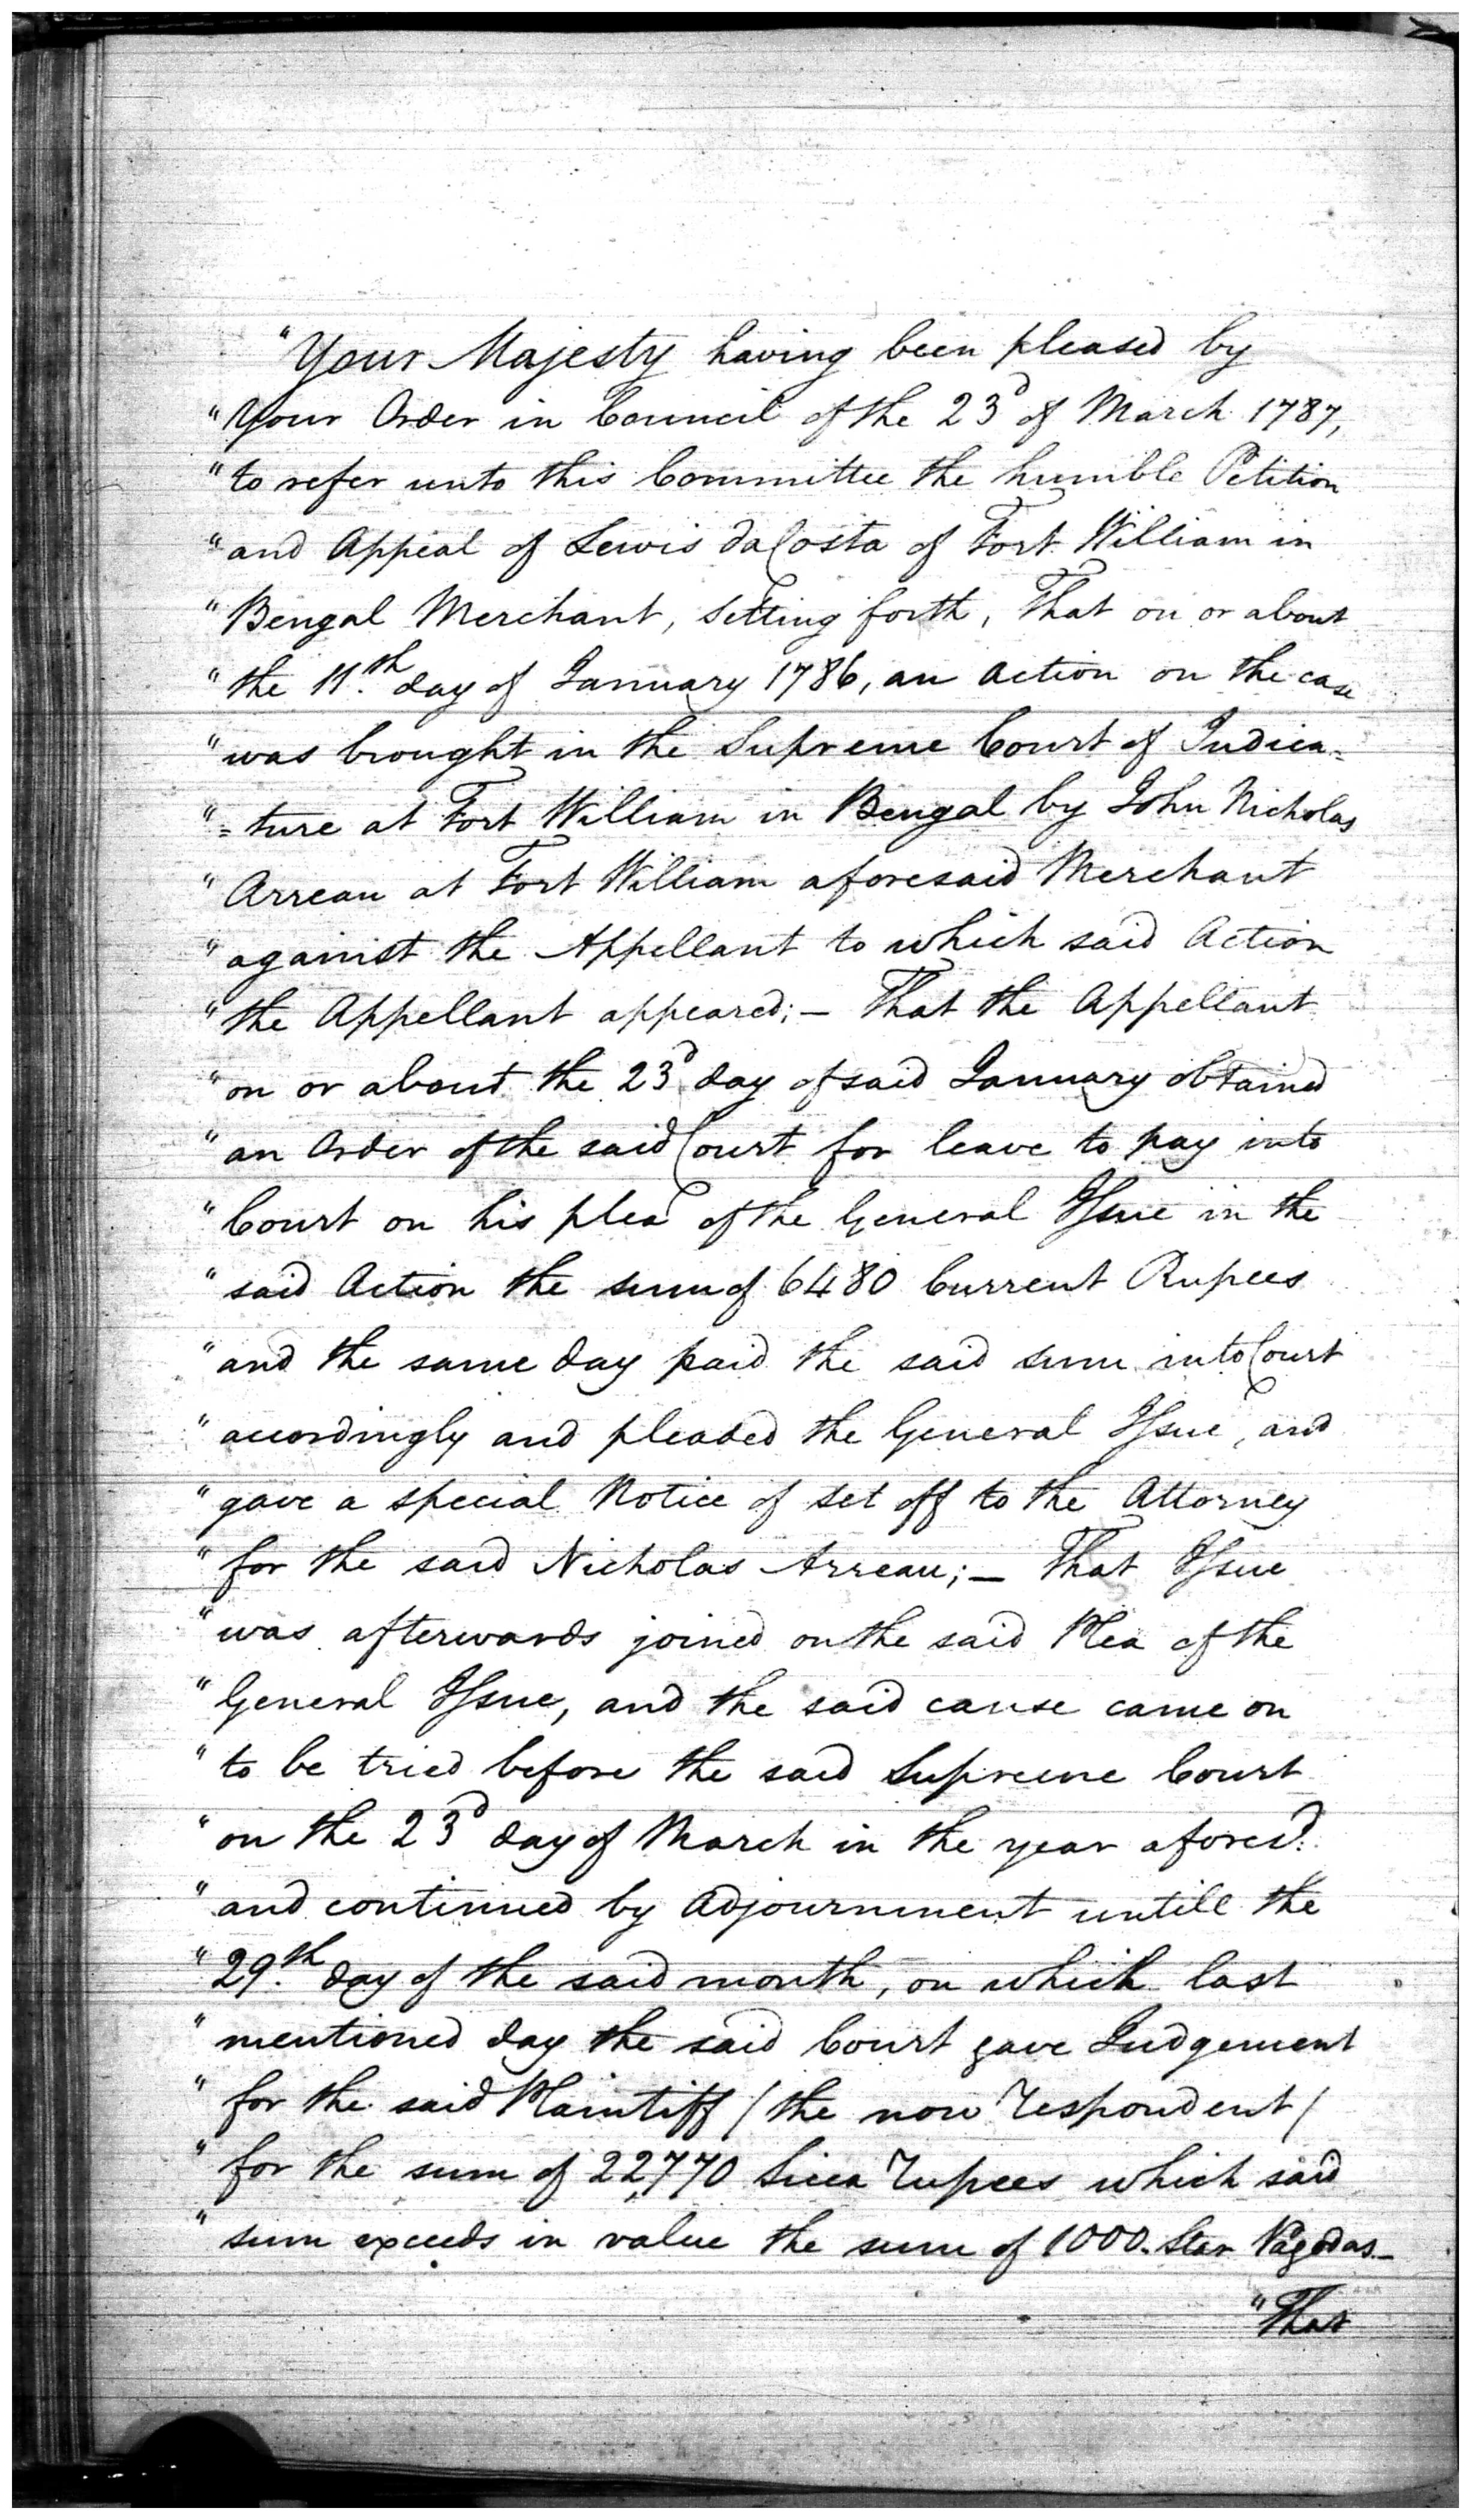 "Your Majesty having been pleased by
"Your Order in Council of the 23d of March 1787,
"to refer unto this Committee the humble Petition
"and Appeal of Lewis daCosta of Fort William in
"Bengal Merchant, setting forth, That on or about
"the 11.th day of January 1786, an Action on the case
"was brought in the Supreme Court of Judica=
"=ture at Fort William in Bengal by John Nicholas
"Arreau at Fort William aforesaid Merchant
"against the Appellant to which said Action
"the Appellant appeared;— That the Appellant
"on or about the 23d day of said January obtained
"an Order of the said Court for leave to pay into
"Court on his plea of the General Issue in the
"said Action the sum of 6480 Current Rupees
"and the same day paid the said sum into Court
"accordingly and pleaded the General Issue, and
"gave a special Notice of set off to the Attorney
"for the said Nicholas Arreau;— That Issue
"was afterwards joined on the said Plea of the
"General Issue, and the said cause came on
"to be tried before the said Supreme Court
"on the 23d day of March in the year aforesd.
"and continued by Adjournment untill the
"29.th day of the said month, on which last
"mentioned day the said Court gave Judgement
"for the said Plaintiff / the now respondent /
"for the sum of 22,770 Sicca rupees which said
"sum exceeds in value the sum of 1000. Star Pagodas—
"That